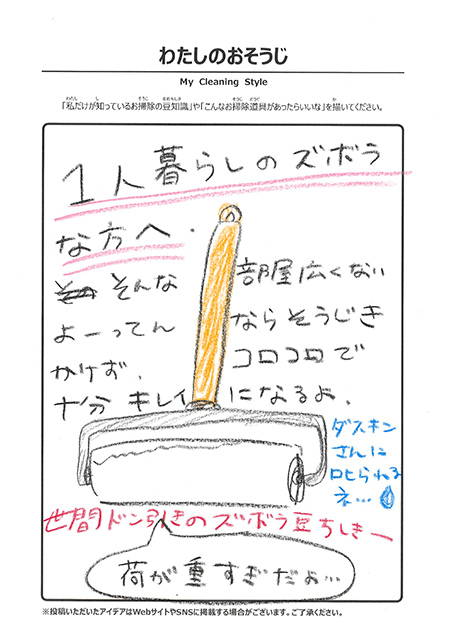 わたしのおそうじ
My Cleaning Style
「私だけが知っているお掃除の豆知識」や「こんなお掃除道具があったらいいな」を描いてください。
1人暮らしのズボラ
な方へ.
そんな 部屋広くない
よーってん ならそうじき
かけず. コロコロで
十分キレイになるよ.
ダスキン
さんに
叱られる
ネ…
世間ドン引きのズボラ豆ちしきー
荷が重すぎだよ…
※投稿いただいたアイデアはWebサイトやSNSに掲載する場合がございます。ご了承ください。